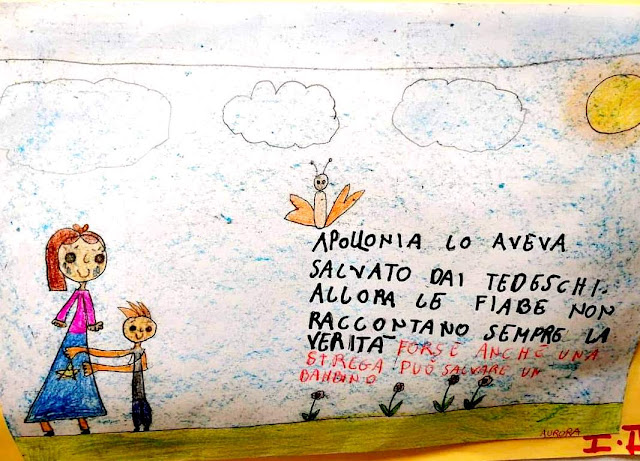 APOLLONIA LO AVEVA
SALVATO DAI TEDESCHI.
ALLORA LE FIABE NON
RACCONTANO SEMPRE LA
VERITÀ FORSE ANCHE UNA
STREGA PUÒ SALVARE UN
BAMBINO
AURORA